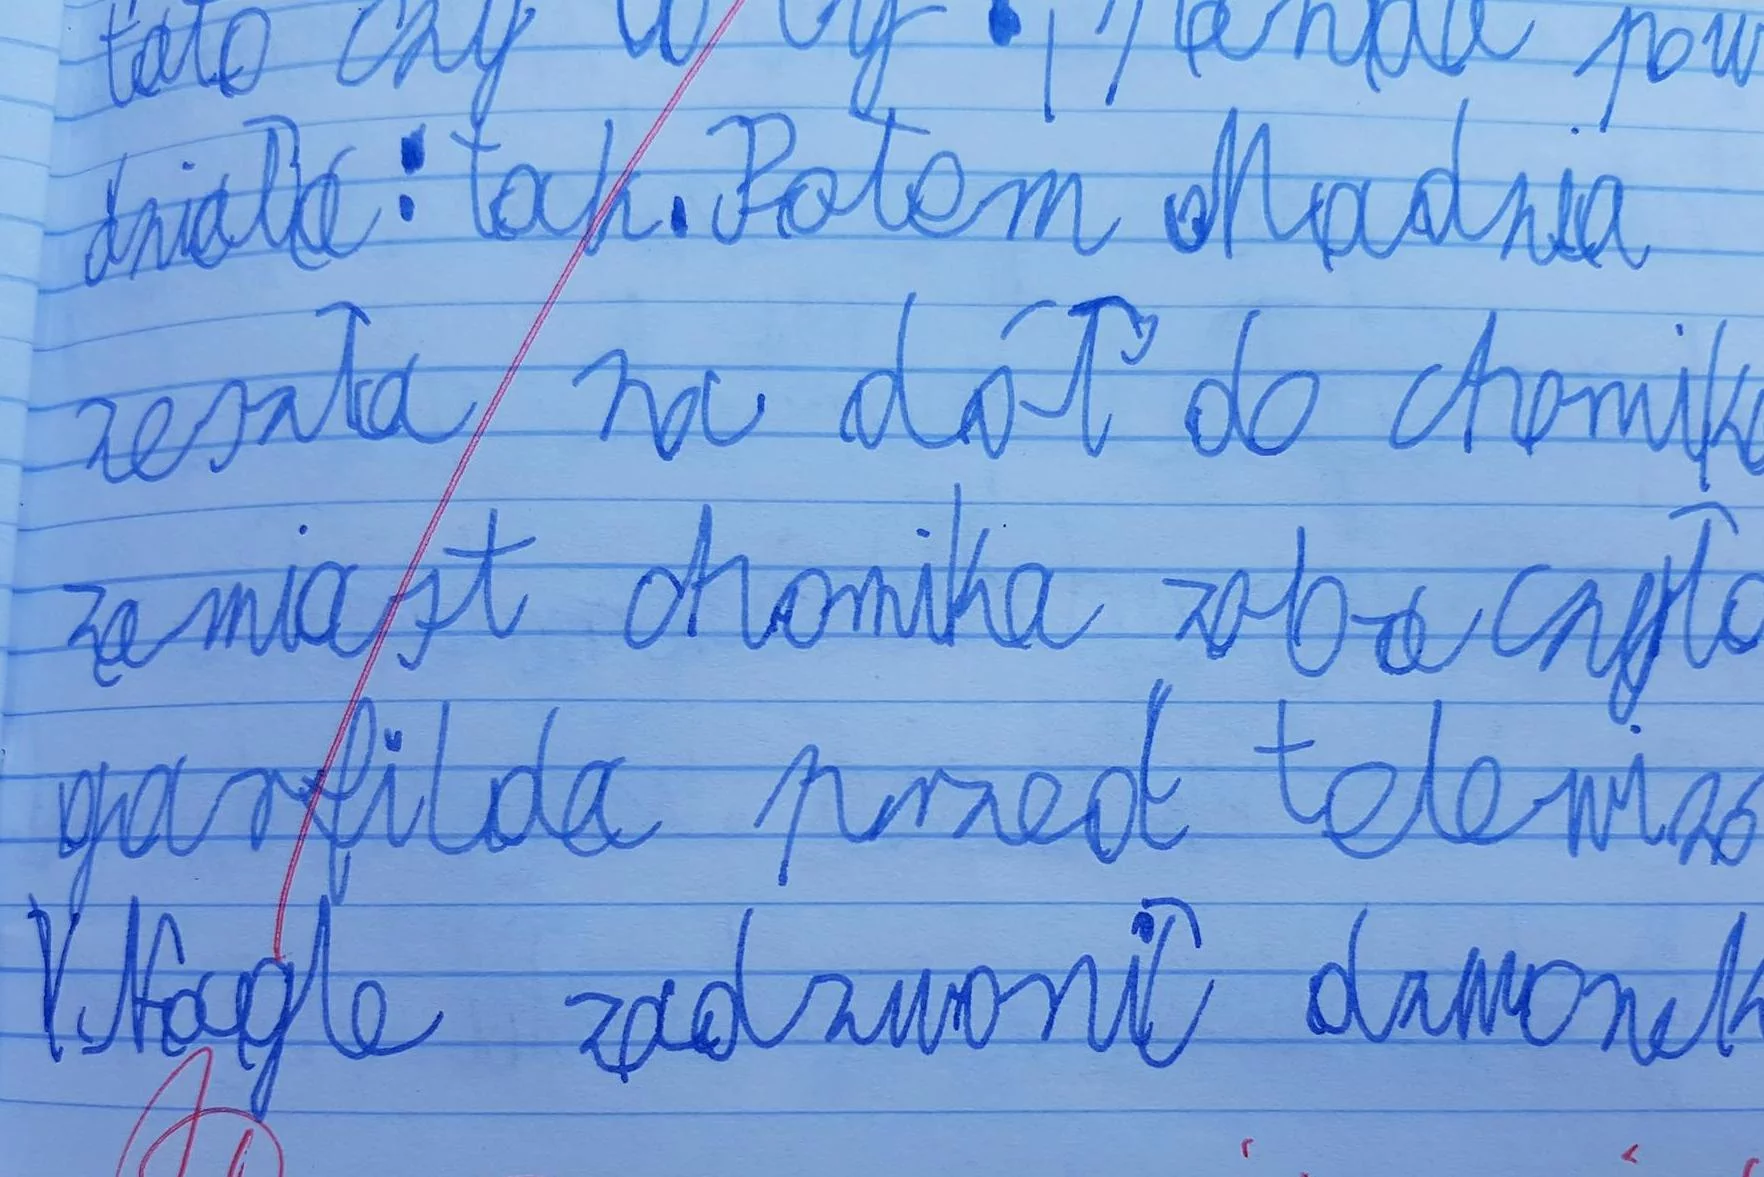 tato czy to ty : , / Magda pow
działa : tak. Potem Madzia
zeszła na dół do chomik
zamiast chomika zobaczyła
garfilda przed telewizo
V.Nagle zadzwonił dzwonek